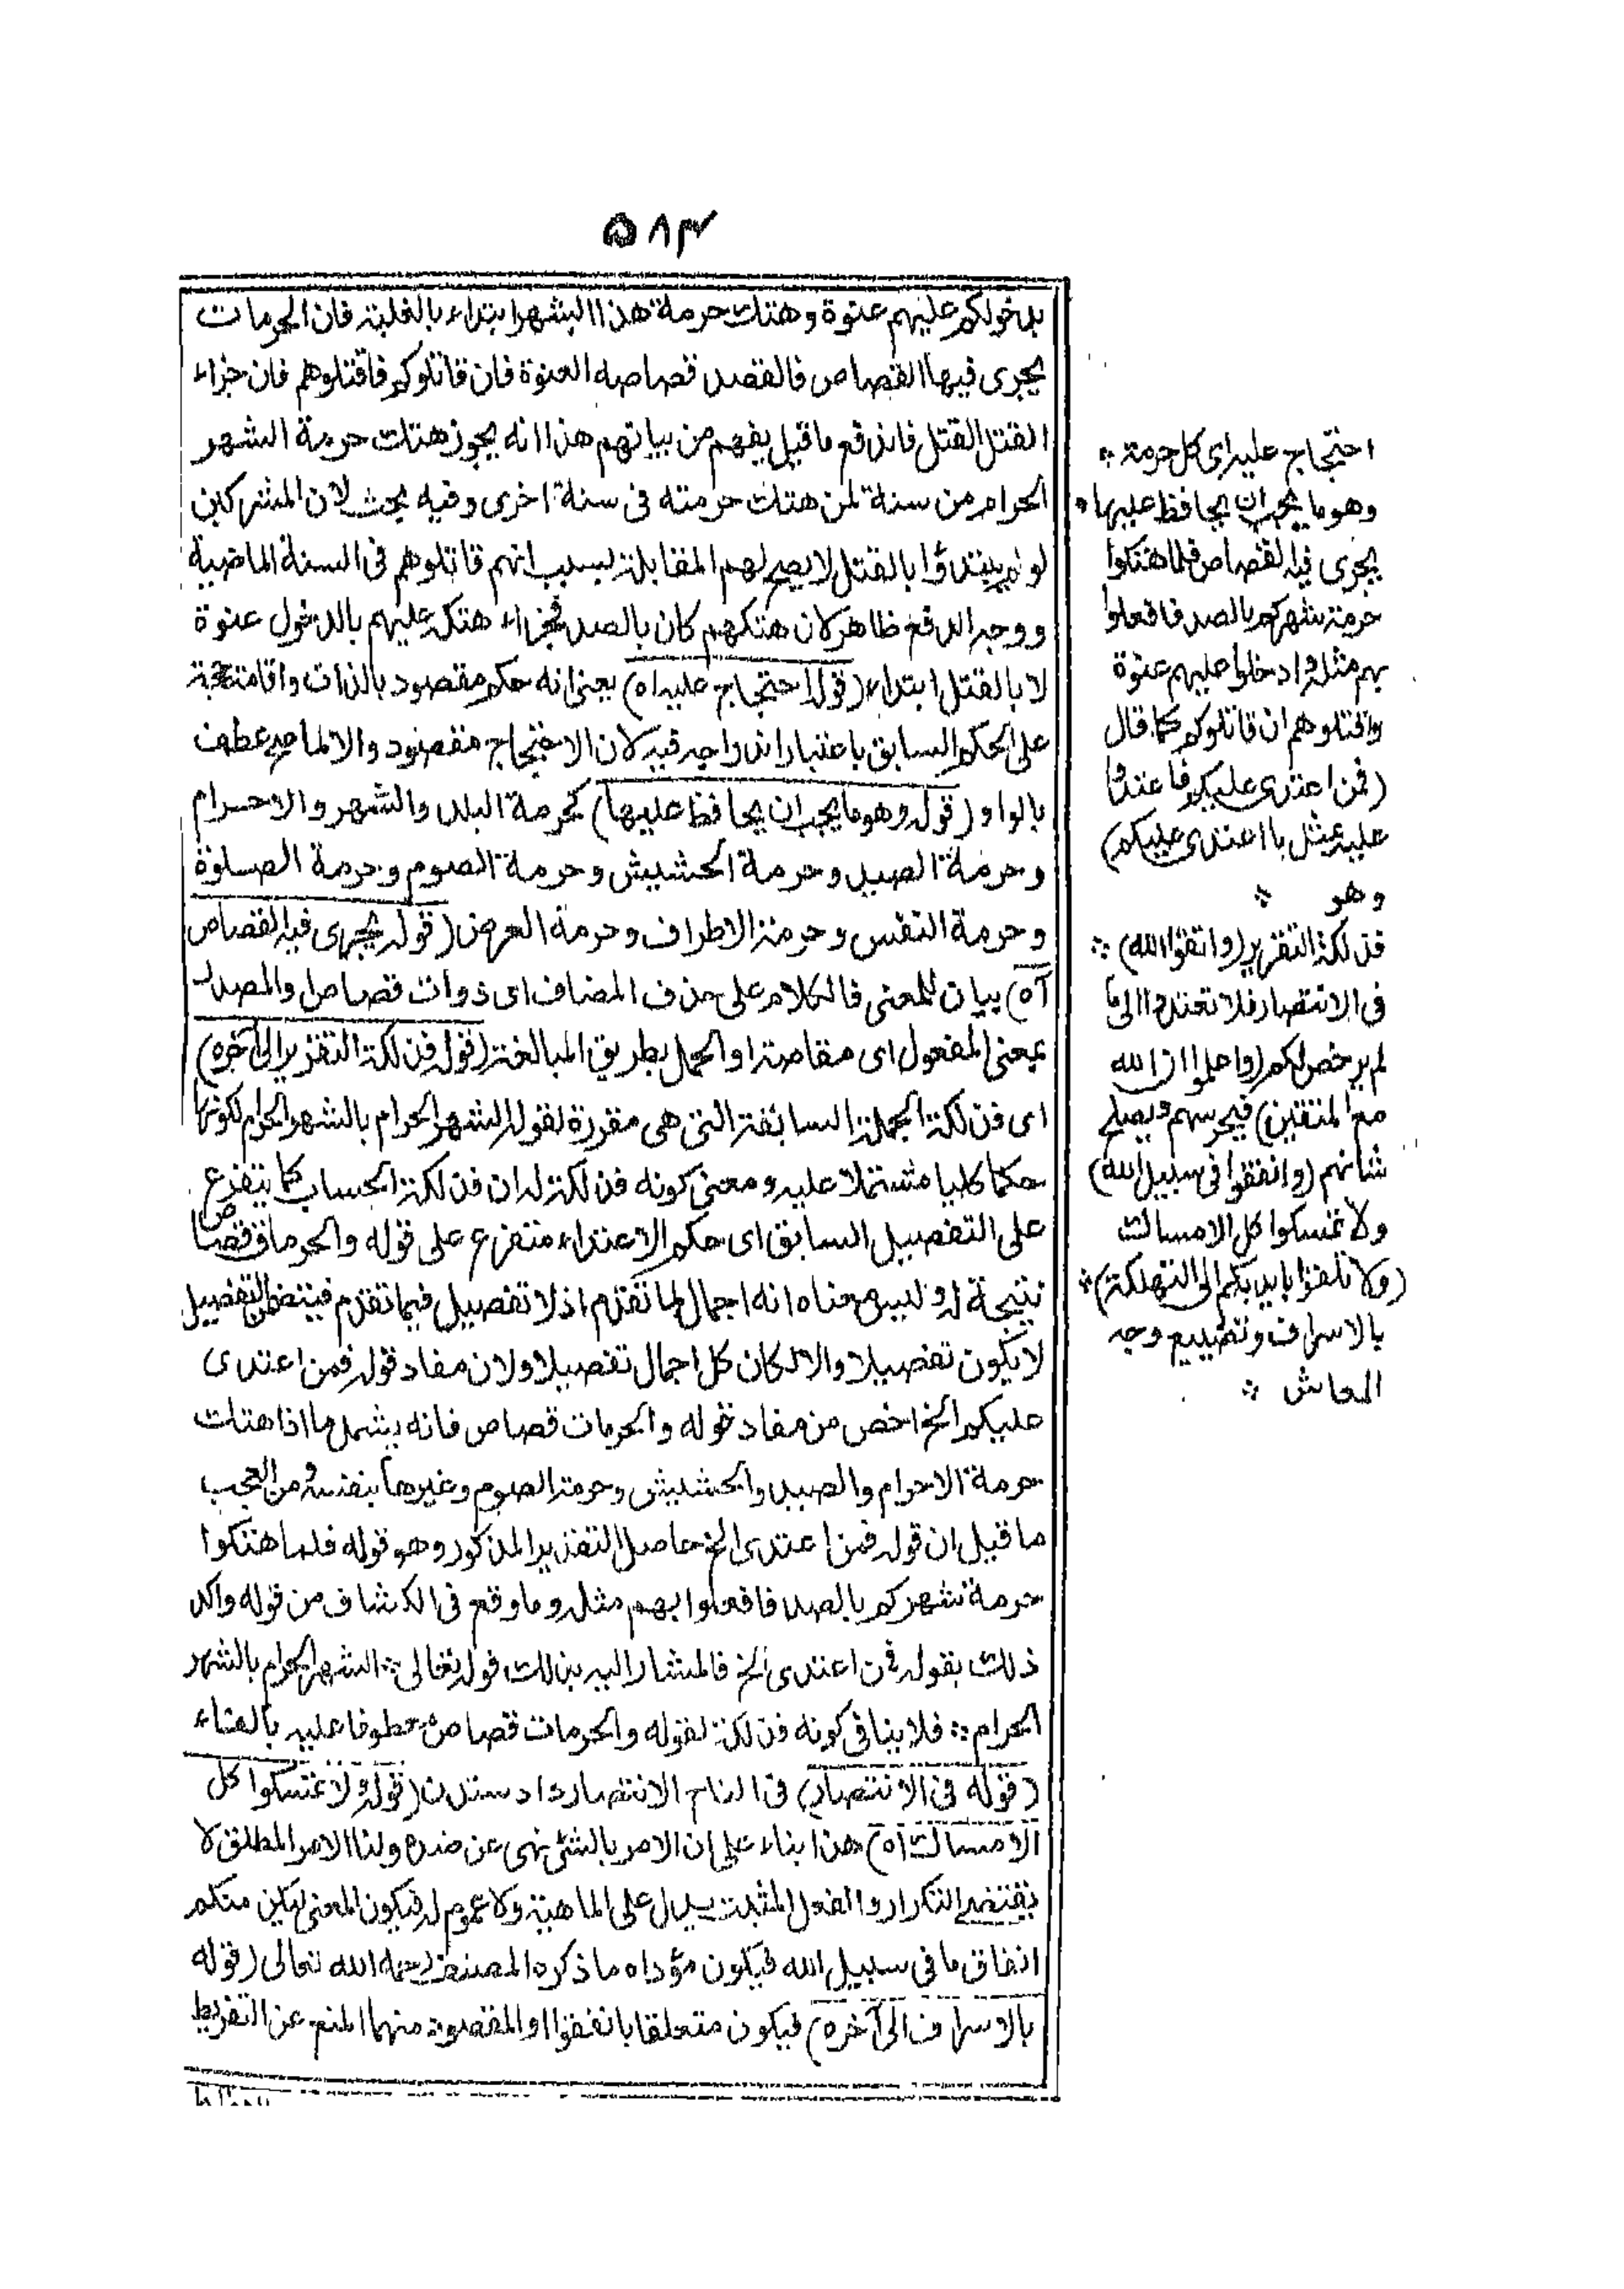 ٥٨٣
بدخولكم عليهم عنوة وهتك حرمة هذا الشهر ابتداء بالغلبة فان الحرمات
يجرى فيها القصاص فالقصد قصاصه العنوة فان قاتلوكم فاقتلوهم فان جزاء
القتل القتل فاندفع ما قيل يفهم من بيانهم هذا انه يجوز هتك حرمة الشهر
الحرام من سنة لمن هتك حرمته فى سنة اخرى وفيه بحث لان المشركين
لو لم يبتدؤا بالقتل لا يصح لهم المقابلة بسبب انهم قاتلوهم فى السنة الماضية
ووجه الدفع ظاهر لان هتكهم كان بالصد فجزاء هتكه عليهم بالدخول عنوة
لا بالقتل ابتداء (قوله احتجاج عليه اه) يعنى انه حكم مقصود بالذات واقامة حجة
على الحكم السابق باعتبار اندراجه فيه لان الاحتجاج مقصود والا لما صح عطف
بالواو (قوله وهو ما يجب ان يحافظ عليها) كحرمة البلد والشهر والاحرام
وحرمة الصيد وحرمة الحشيش وحرمة الصوم وحرمة الصلوة
وحرمة النفس وحرمة الاطراف وحرمة العرض (قوله يجرى فيه القصاص
آه) بيان للمعنى فالكلام على حذف المضاف اى ذوات قصاص والمصدر
بمعنى المفعول اى مقاصة او الحمل بطريق المبالغة (قوله فذلكة التقرير الى آخره)
اى فذلكة الجملة السابقة التى هى مقررة لقوله الشهر الحرام بالشهر الحرام لكونها
حكما كليا مشتملا عليه ومعنى كونه فذلكة له ان فذلكة الحساب كما يتفرع
على التفصيل السابق اى حكم الاعتداء متفرع على قوله والحرمات قصاص
نتيجة له وليس معناه انه اجمال لما تقدم اذ لا تفصيل فيما تقدم فيتضمن التفصيل
لا يكون تفصيلا والا لكان كل اجمال تفصيلا ولان مفاد قوله فمن اعتدى
عليكم الخ اخص من مفاد قوله والحرمات قصاص فانه يشمل ما اذا هتك
حرمة الاحرام والصيد والحشيش وحرمة الصوم وغيرها بنفسه ومن العجب
ما قيل ان قوله فمن اعتدى الخ حاصل التقرير المذكور وهو قوله فلما هتكوا
حرمة شهركم بالصد فافعلوا بهم مثله وما وقع فى الكشاف من قوله واكد
ذلك بقوله فمن اعتدى الخ فالمشار اليه بذلك قوله تعالى ❊ الشهر الحرام بالشهر
الحرام ❊ فلا ينافى كونه فذلكة لقوله والحرمات قصاص معطوفا عليه بالفاء
(قوله فى الانتصار) فى التاج الانتصار داد ستدن (قوله ولا تمسكوا كل
الامساك آه) هذا بناء على ان الامر بالشئ نهى عن ضده ولذا الامر المطلق لا
يقتضى التكرار والفعل المثبت يدل على الماهية ولا عموم له فيكون المعنى ليكن منكم
انفاق ما فى سبيل الله فيكون مؤداه ما ذكره المصنف رحمه الله تعالى (قوله
بالاسراف الى آخره) فيكون متعلقا بانفقوا او المقصود منهما المنع عن التفريط
احتجاج عليه اى كل حرمة ❊
وهو ما يجب ان يحافظ عليها ❊
يجرى فيه القصاص فلما هتكوا
حرمة شهركم بالصد فافعلوا
بهم مثله وادخلوا عليهم عنوة
واقتلوهم ان قاتلوكم كما قال
(فمن اعتدى عليكم فاعتدوا
عليه بمثل ما اعتدى عليكم)
وهو ❊
فذلكة التقرير (واتقوا الله) ❊
فى الانتصار فلا تعتدوا الى ما
لم يرخص لكم (واعلموا ان الله
مع المتقين) فيحرسهم ويصلح
شانهم (وانفقوا فى سبيل الله)
ولا تمسكوا كل الامساك
(ولا تلقوا بايديكم الى التهلكة) ❊
بالاسراف وتضييع وجه
المعاش ❊